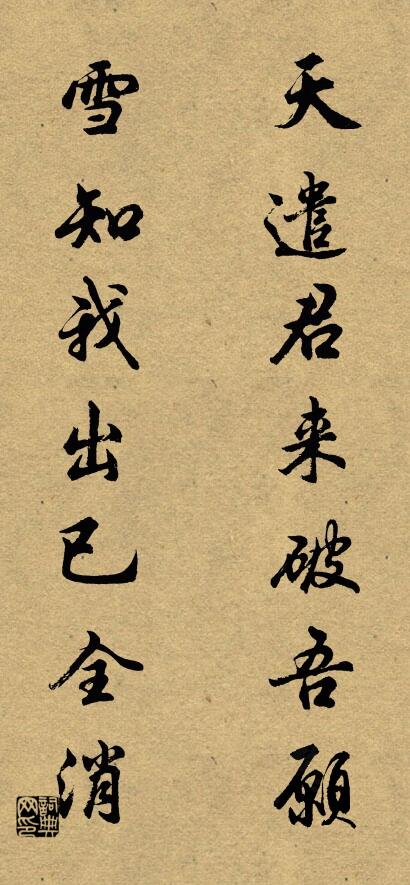 天遣君来破吾愿
雪知我出已全消
詞典网印